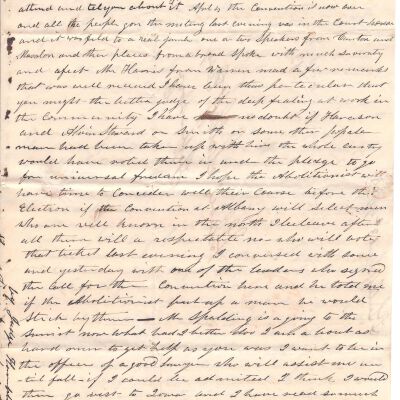 attend and tell you about it Apl 4 the Convention is now over
and all the people you the meeting last evening was in the Court House
and it was full to a real jamb one or two Speakers from Canton and
and other places from abroad spoke with much
and after Mr Harris from Warren made a few remarks
that was well received I have been thus particular that
you might the better judge of the deep fealing at work in
the Community I have no doubt if
and Alvin Steward or Smith or some other
man had been taken up with him the whole
would have voted them in under the pledge to go
for universal freedom I hope the Abolitionist will
have time to Concider well their Course before the
Election if the Convention at Albany will Select men
who are well known in the north I beleave after
all them will a respectable no who will vote
that ticket last evening I conversed with some
and yesterday with one of the leaders who signed
the Call for the Convention here and he told me
if the Abolitionist put up a man he would
Stick by them — Mr Spalding is going to the
now what had I better do I am about as
hard run to get help as you was I want to be in
the office of a good lawyer who will assist me un
-til fall if I could be admitted I think I would
then go west to Iowa and I have read so much